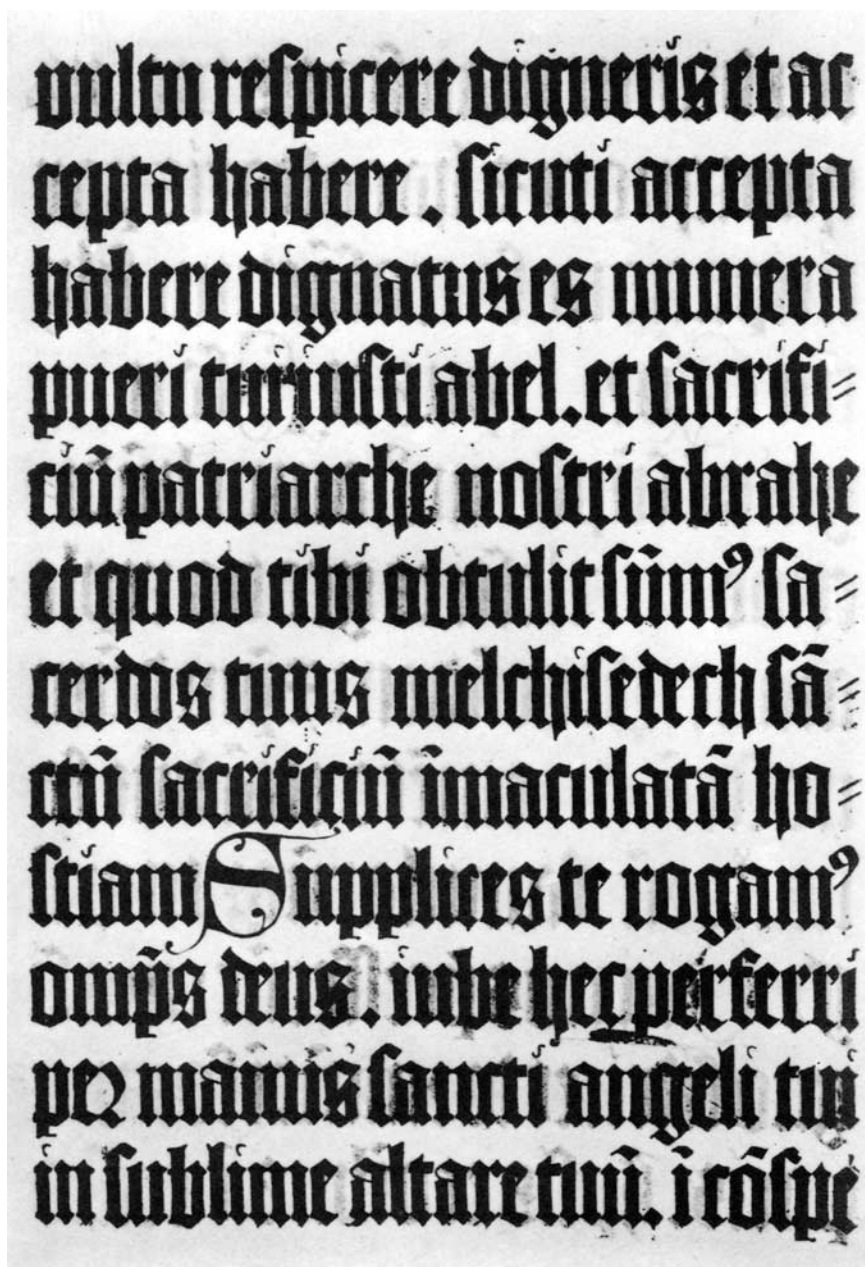 vultu respicere digneris et ac
cepta habere . sicuti accepta
habere dignatus es munera
pueri tui iusti abel. et sacrifi=
ciū patriarche nostri abrahe
et quod tibi obtulit sūmꝰ sa=
cerdos tuus melchisedech sā=
ctū sacrificiū īmaculatā ho=
stiam Supplices te rogamꝰ
omp̄s deus. iube hec perferri
per manus sancti angeli tui
in sublime altare tuū. ī cōspe